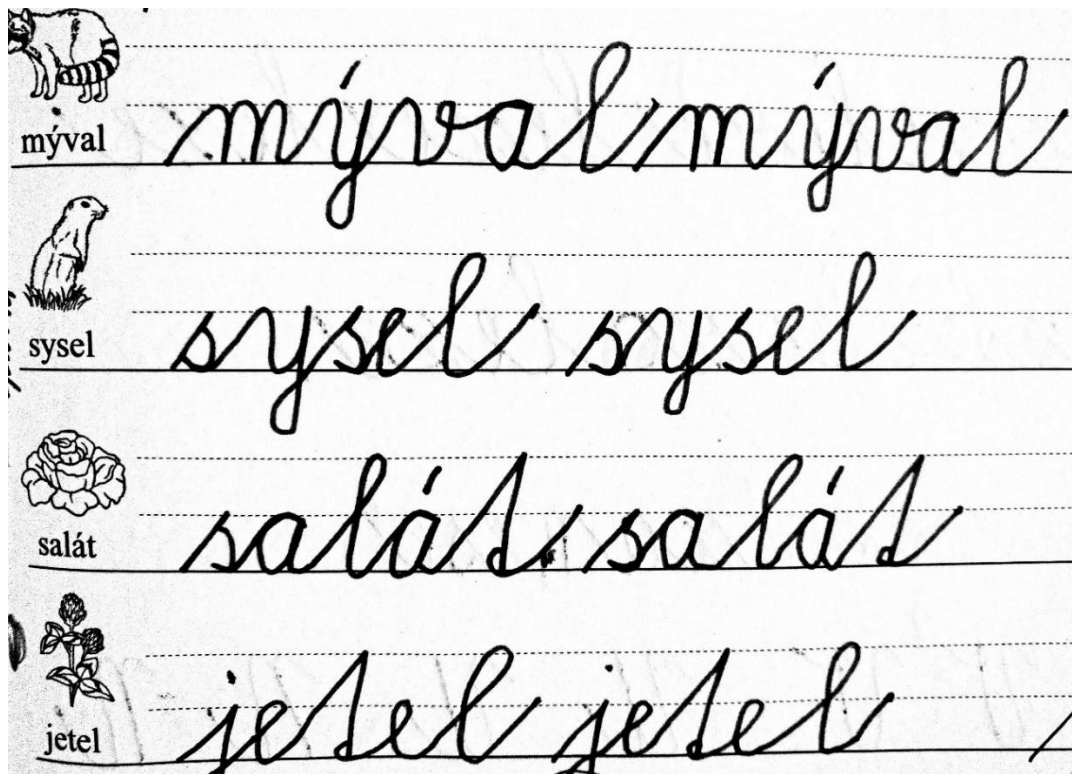 mýval mýval mýval
sysel sysel sysel
salát salát salát
jetel jetel jetel